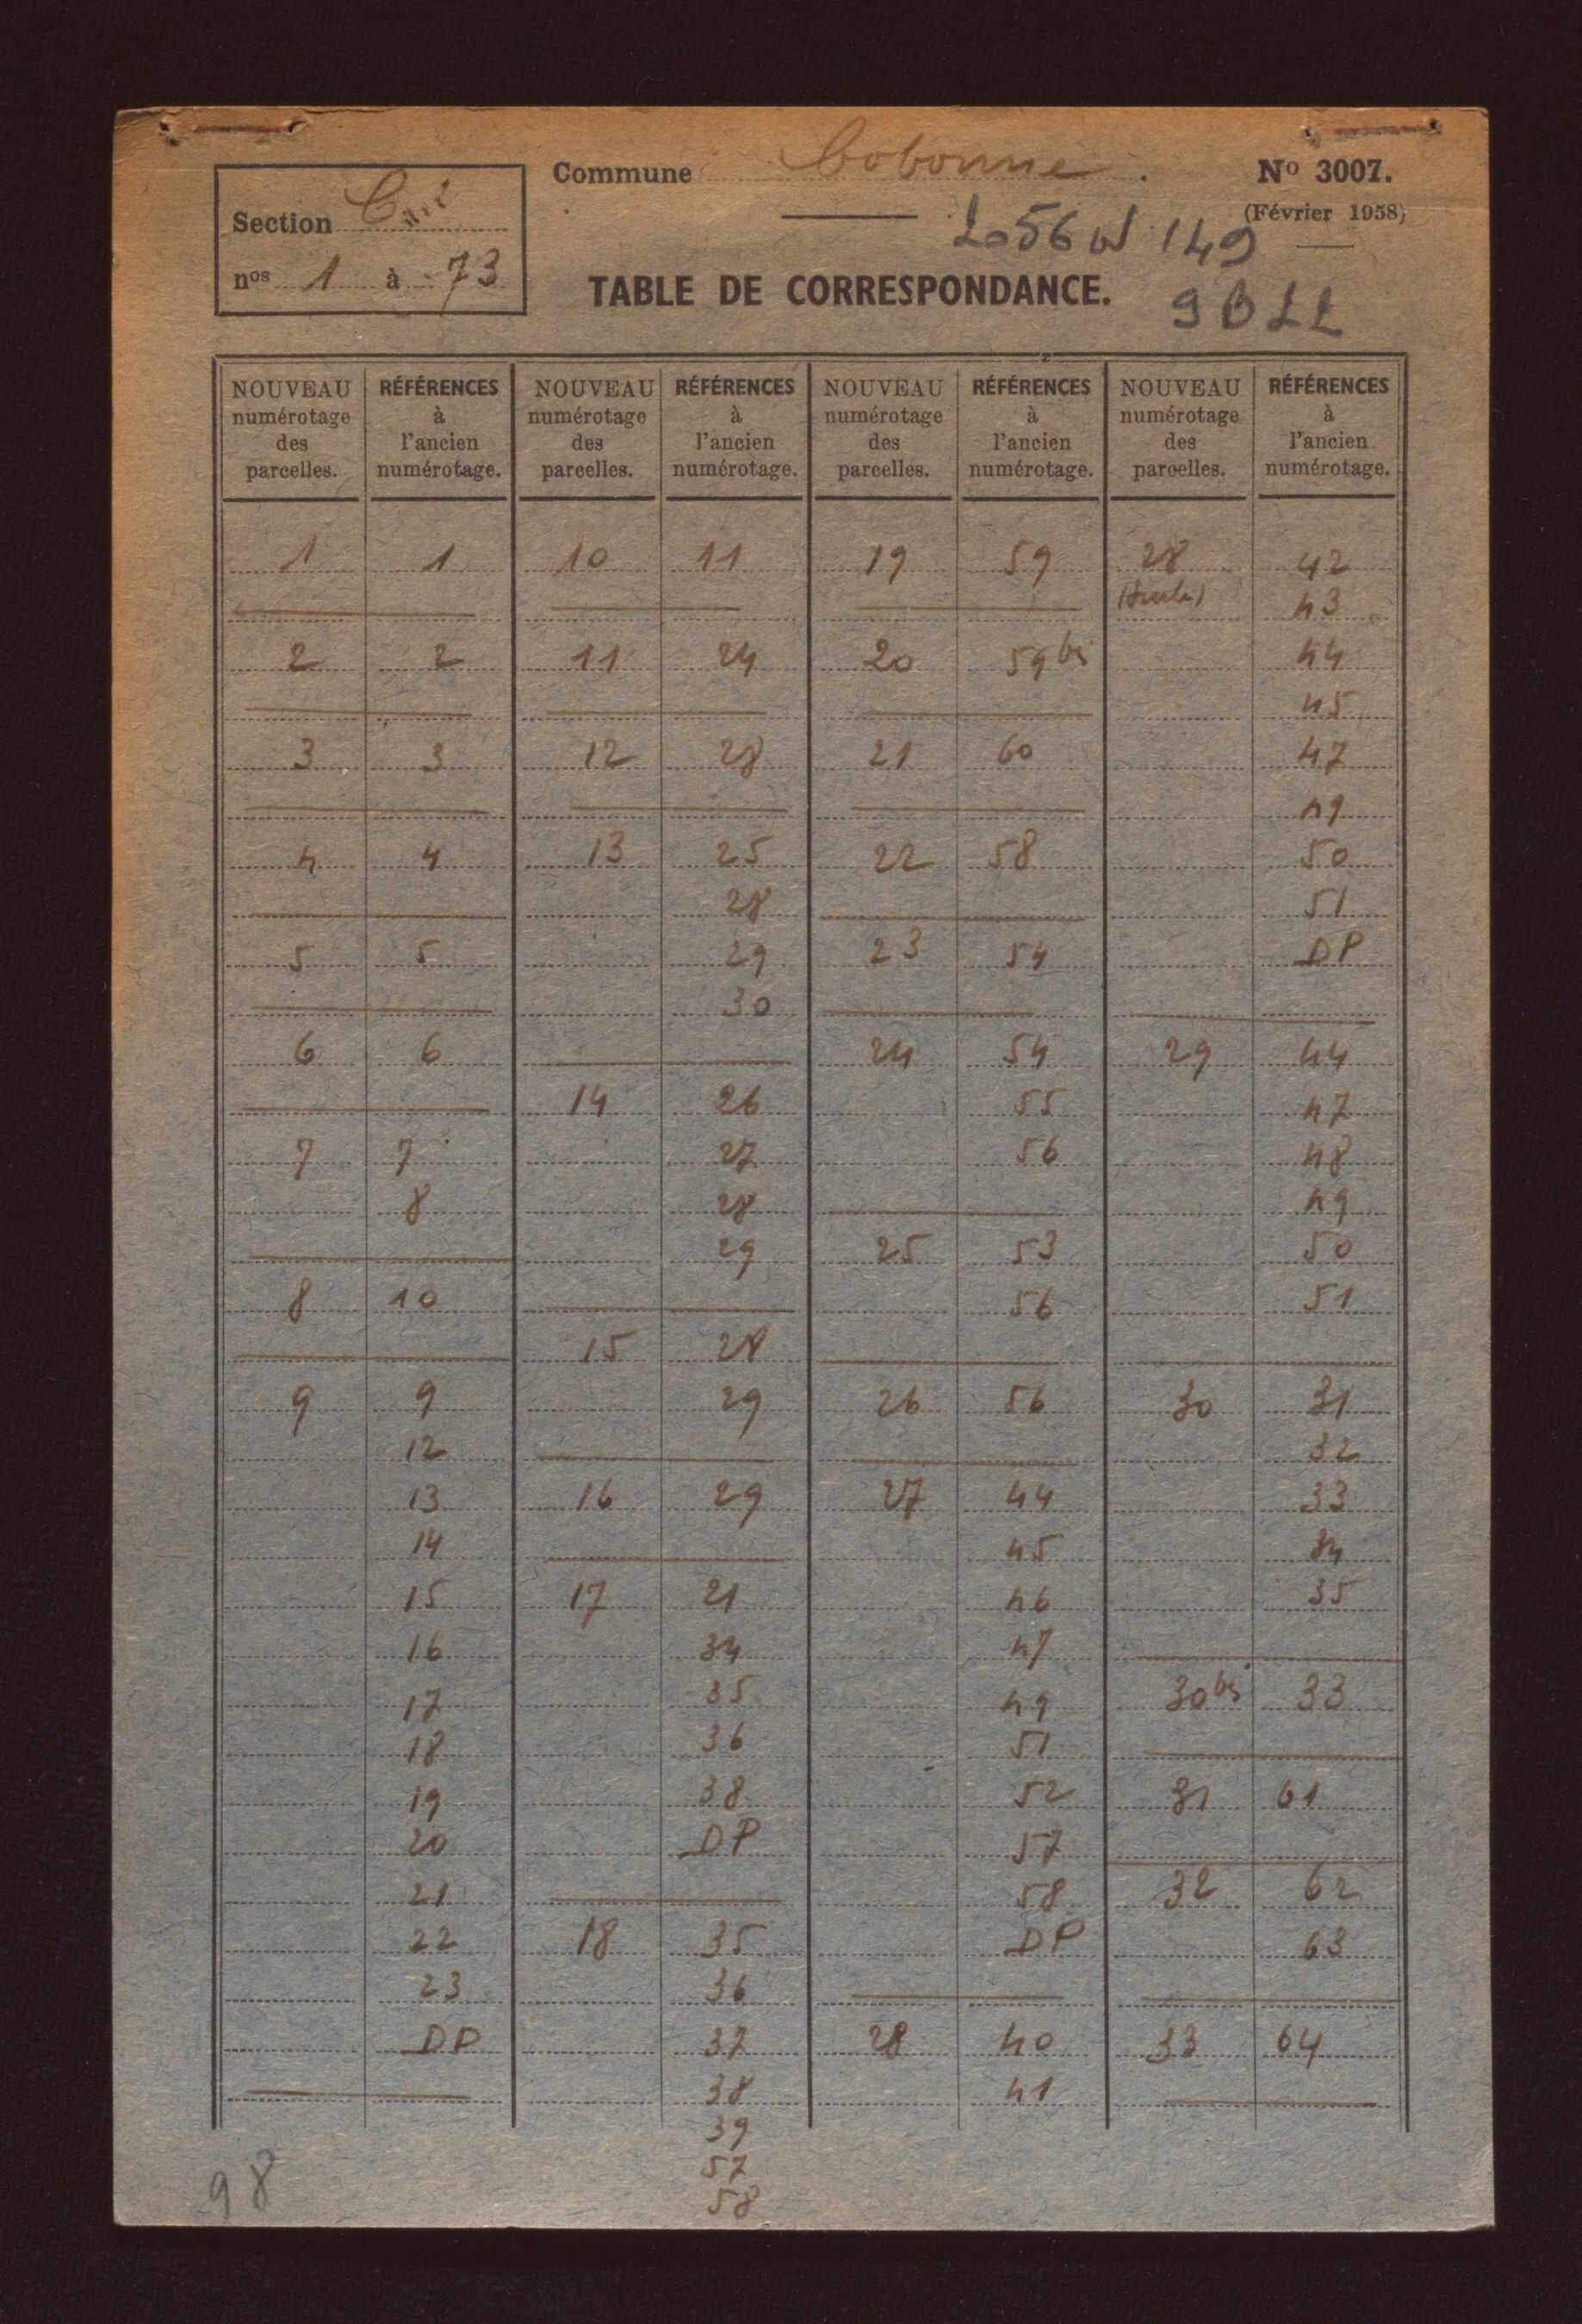 Commune Cobonne.
N° 3007.
(Février 1958)
Section C
nos 1 à 73
2056 W 149
TABLE DE CORRESPONDANCE.
NOUVEAU numérotage des parcelles. | RÉFÉRENCES à l'ancien numérotage. | NOUVEAU numérotage des parcelles. | RÉFÉRENCES à l'ancien numérotage. | NOUVEAU numérotage des parcelles. | RÉFÉRENCES à l'ancien numérotage. | NOUVEAU numérotage des parcelles. | RÉFÉRENCES à l'ancien numérotage.
1 1
2 2
3 3
4 4
5 5
6 6
7 7
8
8 10
9 9
12
13
14
15
16
17
18
19
20
21
22
23
DP
10 11
11 24
12 28
13 25
28
29
30
14 26
27
28
29
15 28
29
16 29
17 21
34
35
36
38
DP
18 35
36
37
38
39
57
58
19 59
20 59 bis
21 60
22 58
23 54
24 54
55
56
25 53
56
26 56
27 44
45
46
47
49
51
52
57
58
DP
28 40
41
28 42
(suite) 43
44
45
47
49
50
51
DP
29 44
47
48
49
50
51
30 31
32
33
34
35
30 bis 33
31 61
32 62
63
33 64
98